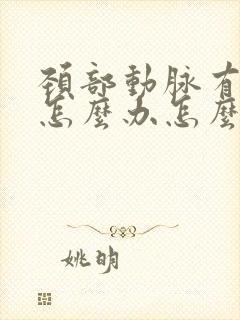 頚部動脉有
怎麼办怎麼
姚明